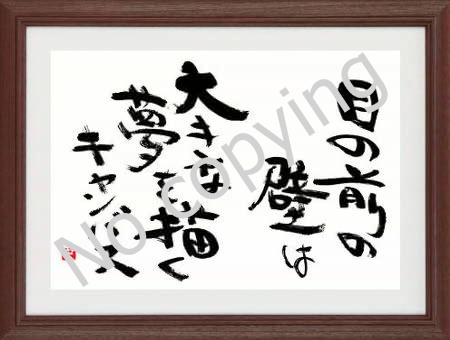 目の前の
壁は
大きな
夢を描く
キャンバス
No copying